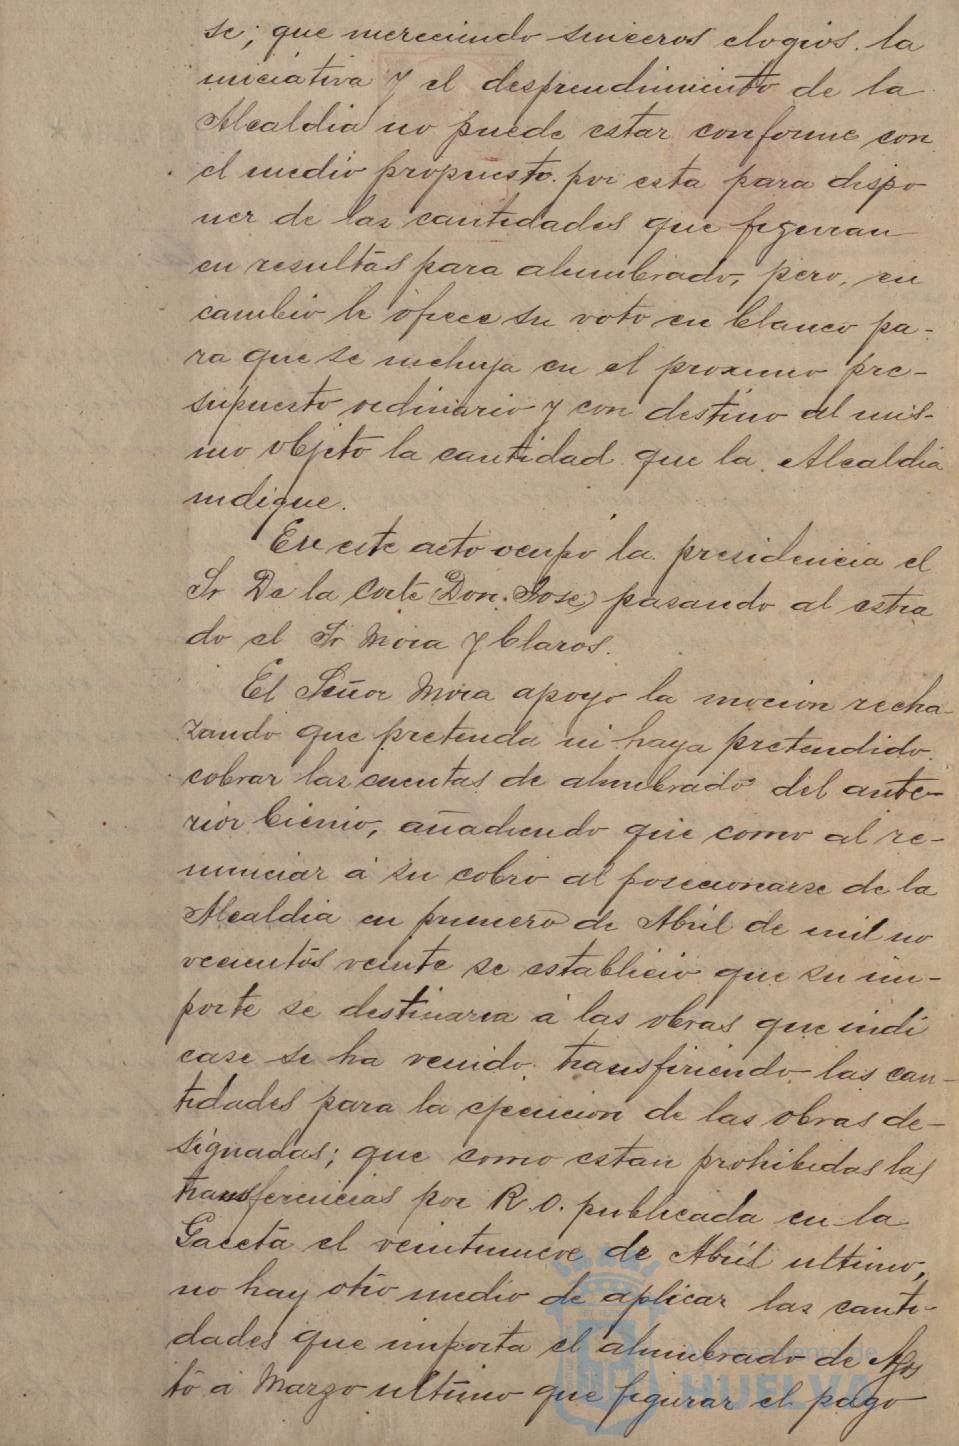 se; que mereciendo sinceros elogios la
iniciativa y el desprendimiento de la
Alcaldia no puede estar conforme con
el medio propuesto por esta para dispo
ner de las cantidades que figuran
en resultas para alumbrado, pero, en
cambio le ofrece su voto en blanco pa-
ra que se incluya en el proximo pre-
supuesto ordinario y con destino al mis-
mo objeto la cantidad que la Alcaldia
indique.
En este acto ocupó la presidencia el
Sr De la Corte (Don Jose) pasando al estra
do el Sr Mora y Claros.
El Señor Mora apoyo la mocion recha-
zando que pretenda ni haya pretendido
cobrar las cuentas de alumbrado del ante-
rior bienio, añadiendo que como al re-
nunciar á su cobro al posecionarse de la
Alcaldia en primero de Abril de mil no
vecientos veinte se establicio que su im-
porte se destinaria á las obras que indi
case se ha venido transfiriendo las can-
tidades para la ejecucion de las obras de-
signadas; que como estan prohibidas las
transferencias por R. O. publicada en la
Gaceta el veintinueve de Abril ultimo,
no hay otro medio de aplicar las canti-
dades que importa el alumbrado de Agos
to á Marzo ultimo que figurar el pago
Ayuntamiento de
HUELVA